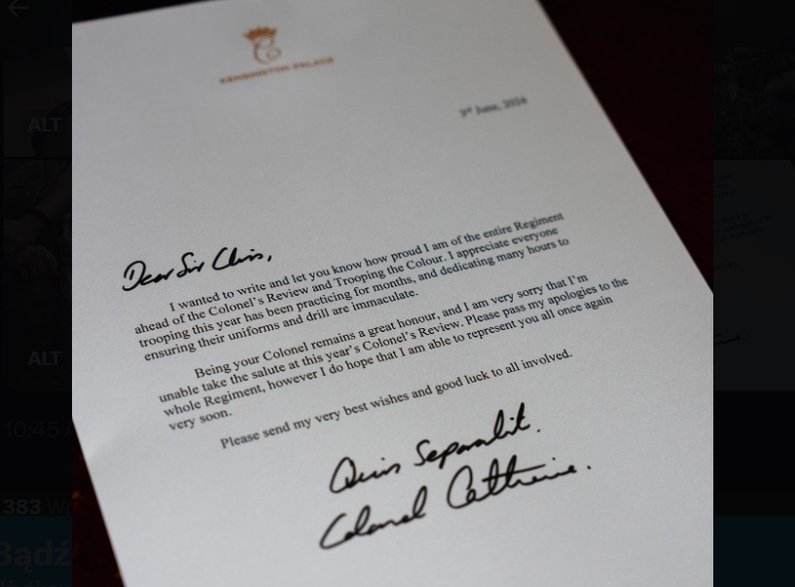 KENSINGTON PALACE
June, 2024
Dear Sir Chris,
I wanted to write and let you know how proud I am of the entire Regiment
ahead of the Colonel's Review and Trooping the Colour. I appreciate everyone
trooping this year has been practicing for months, and dedicating many hours to
ensuring their uniforms and drill are immaculate.
Being your Colonel remains a great honour, and I am very sorry that I'm
unable take the salute at this year's Colonel's Review. Please pass my apologies to the
whole Regiment, however I do hope that I am able to represent you all once again
very soon.
Please send my very best wishes and good luck to all involved.
Quis Separabit.
Colonel Catherine.
ALT
ALT
10:45
383
Bądź